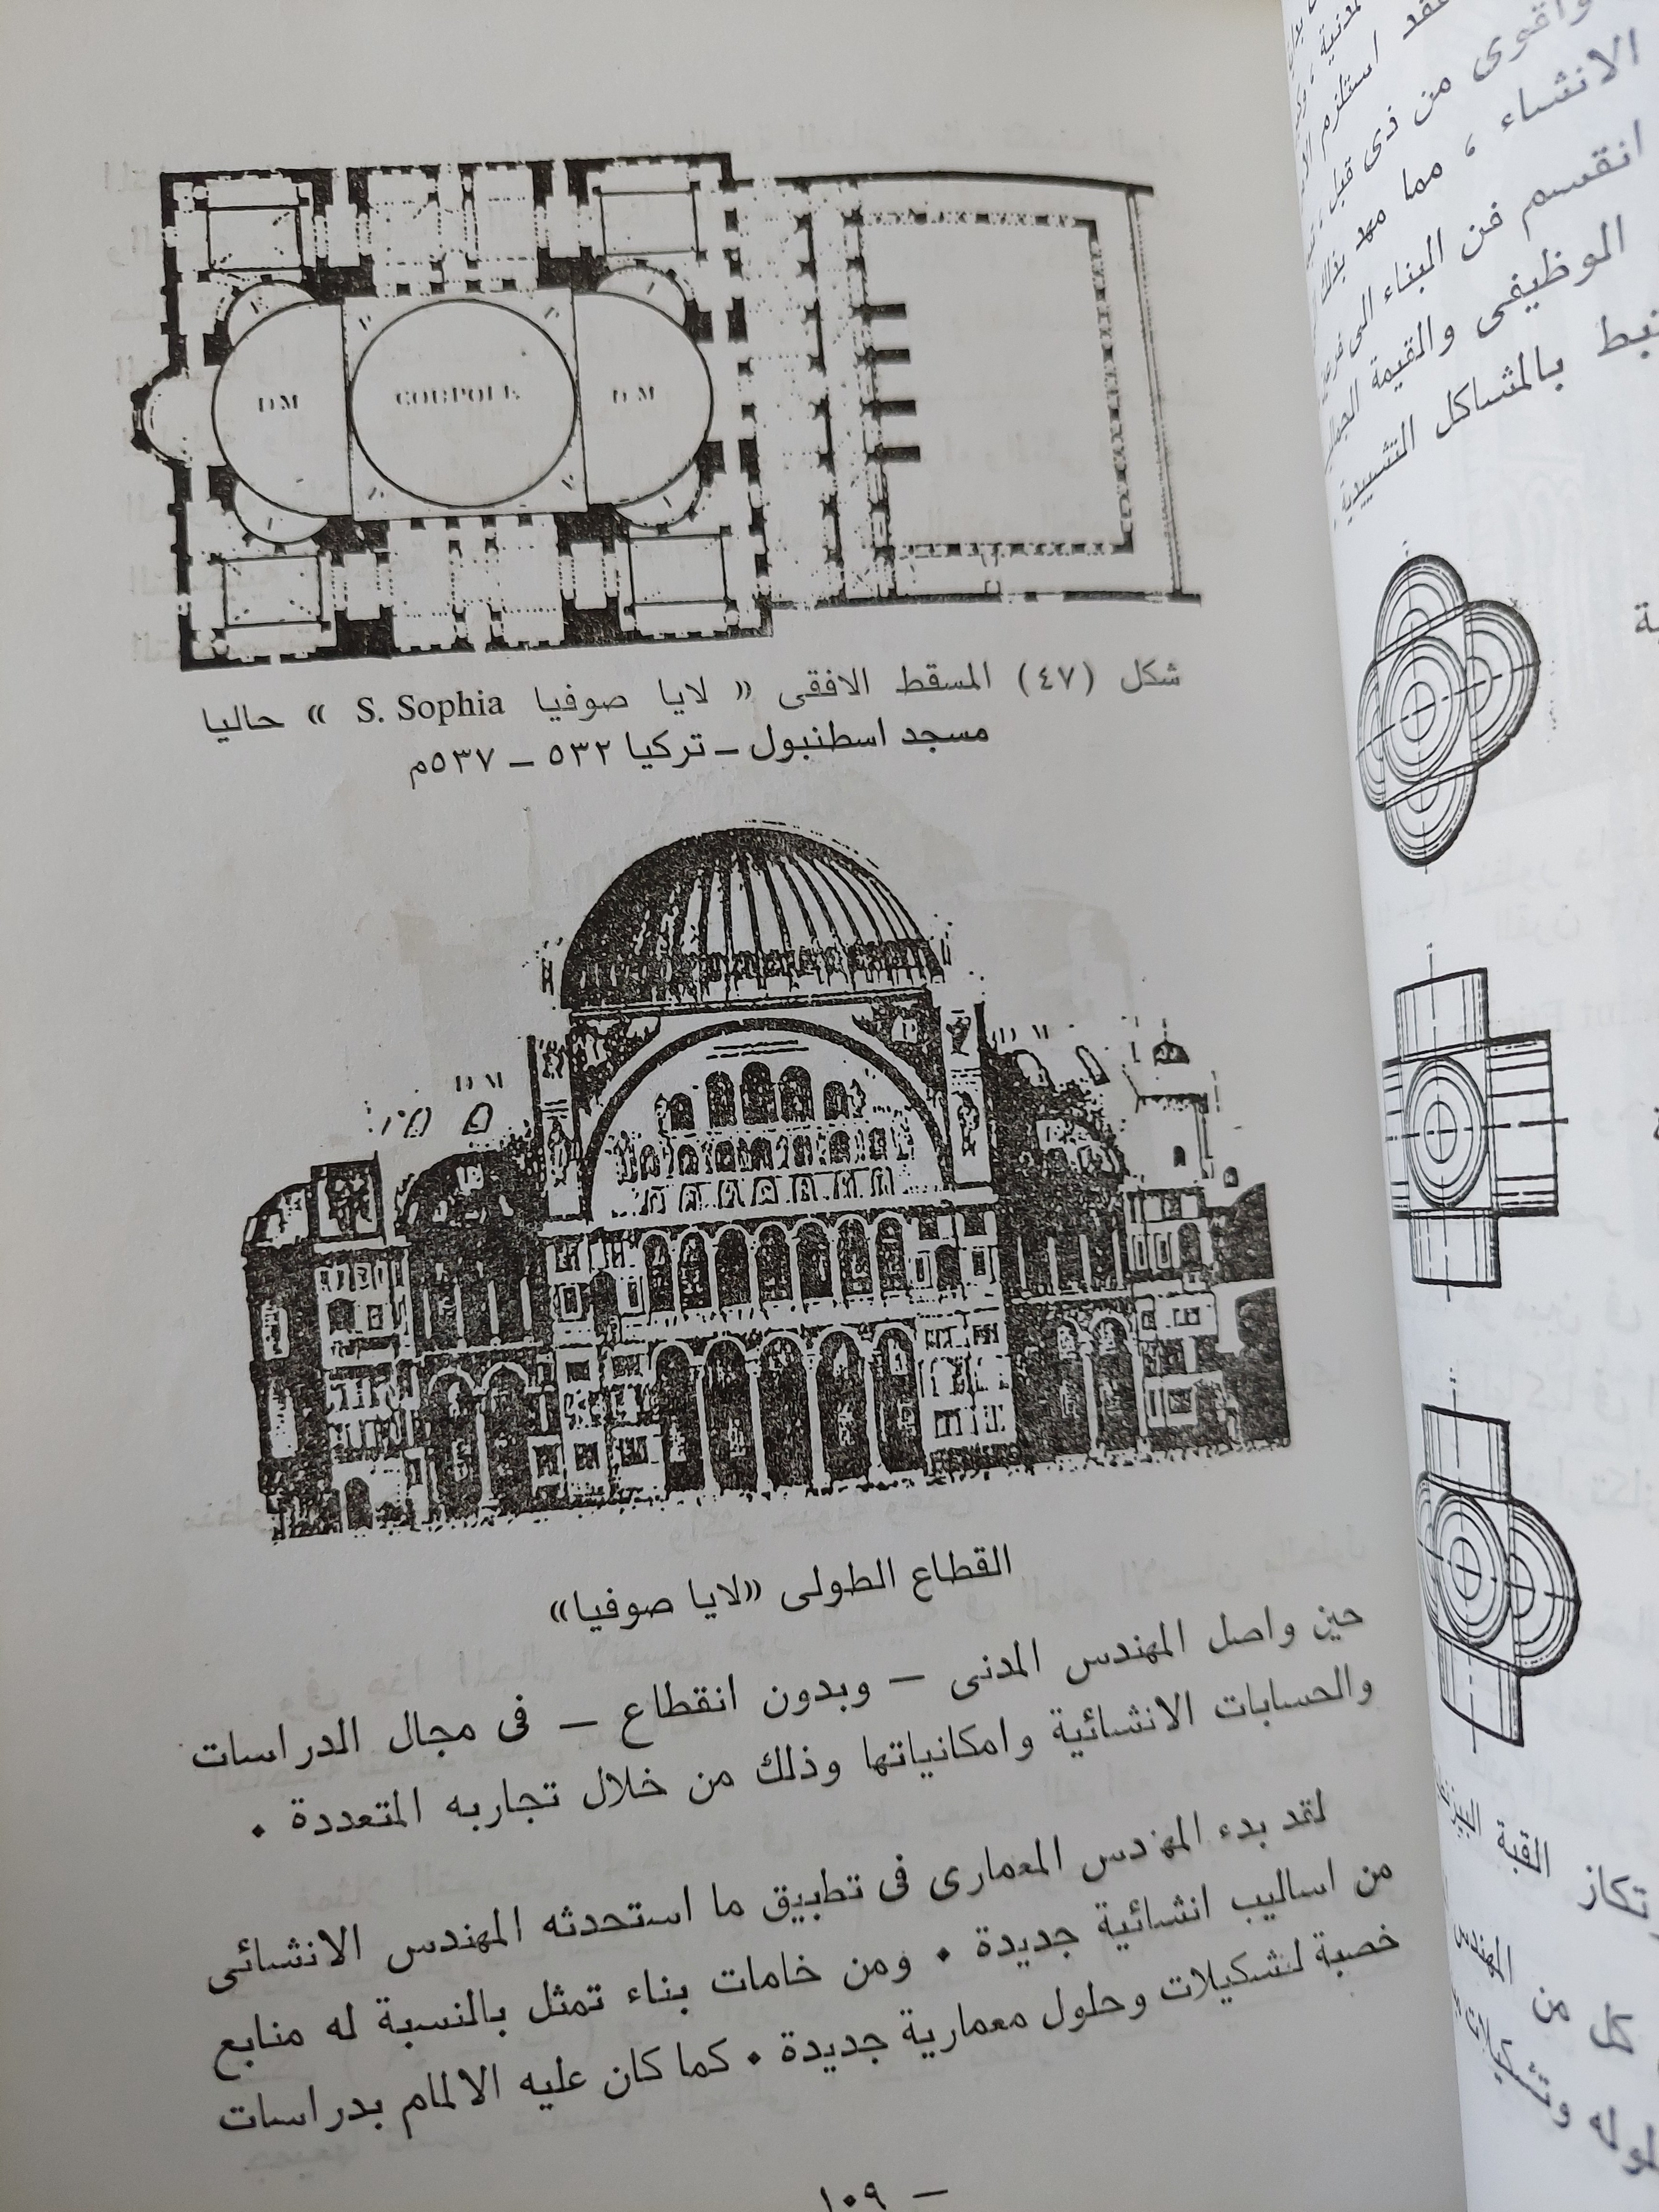 DM COUPOLE DM
شكل (٤٧) المسقط الافقى « لايا صوفيا S. Sophia » حاليا
مسجد اسطنبول ــ تركيا ٥٣٢ ــ ٥٣٧م
DM
DM
القطاع الطولى «لايا صوفيا»
حين واصل المهندس المدنى ــ وبدون انقطاع ــ فى مجال الدراسات
والحسابات الانشائية وامكانياتها وذلك من خلال تجاربه المتعددة .
لقد بدء المهندس المعمارى فى تطبيق ما استحدثه المهندس الانشائى
من اساليب انشائية جديدة . ومن خامات بناء تمثل بالنسبة له منابع
خصبة لتشكيلات وحلول معمارية جديدة . كما كان عليه الالمام بدراسات
ــ ١٠٩
واقوى من ذى قبل
الانشاء ، مما مهد بذلك
انقسم فن البناء الى
الموظيفى والقيمة
بالمشاكل التشييدية .
القبة
تكاز
كل من المهندس
له وتشكيلات